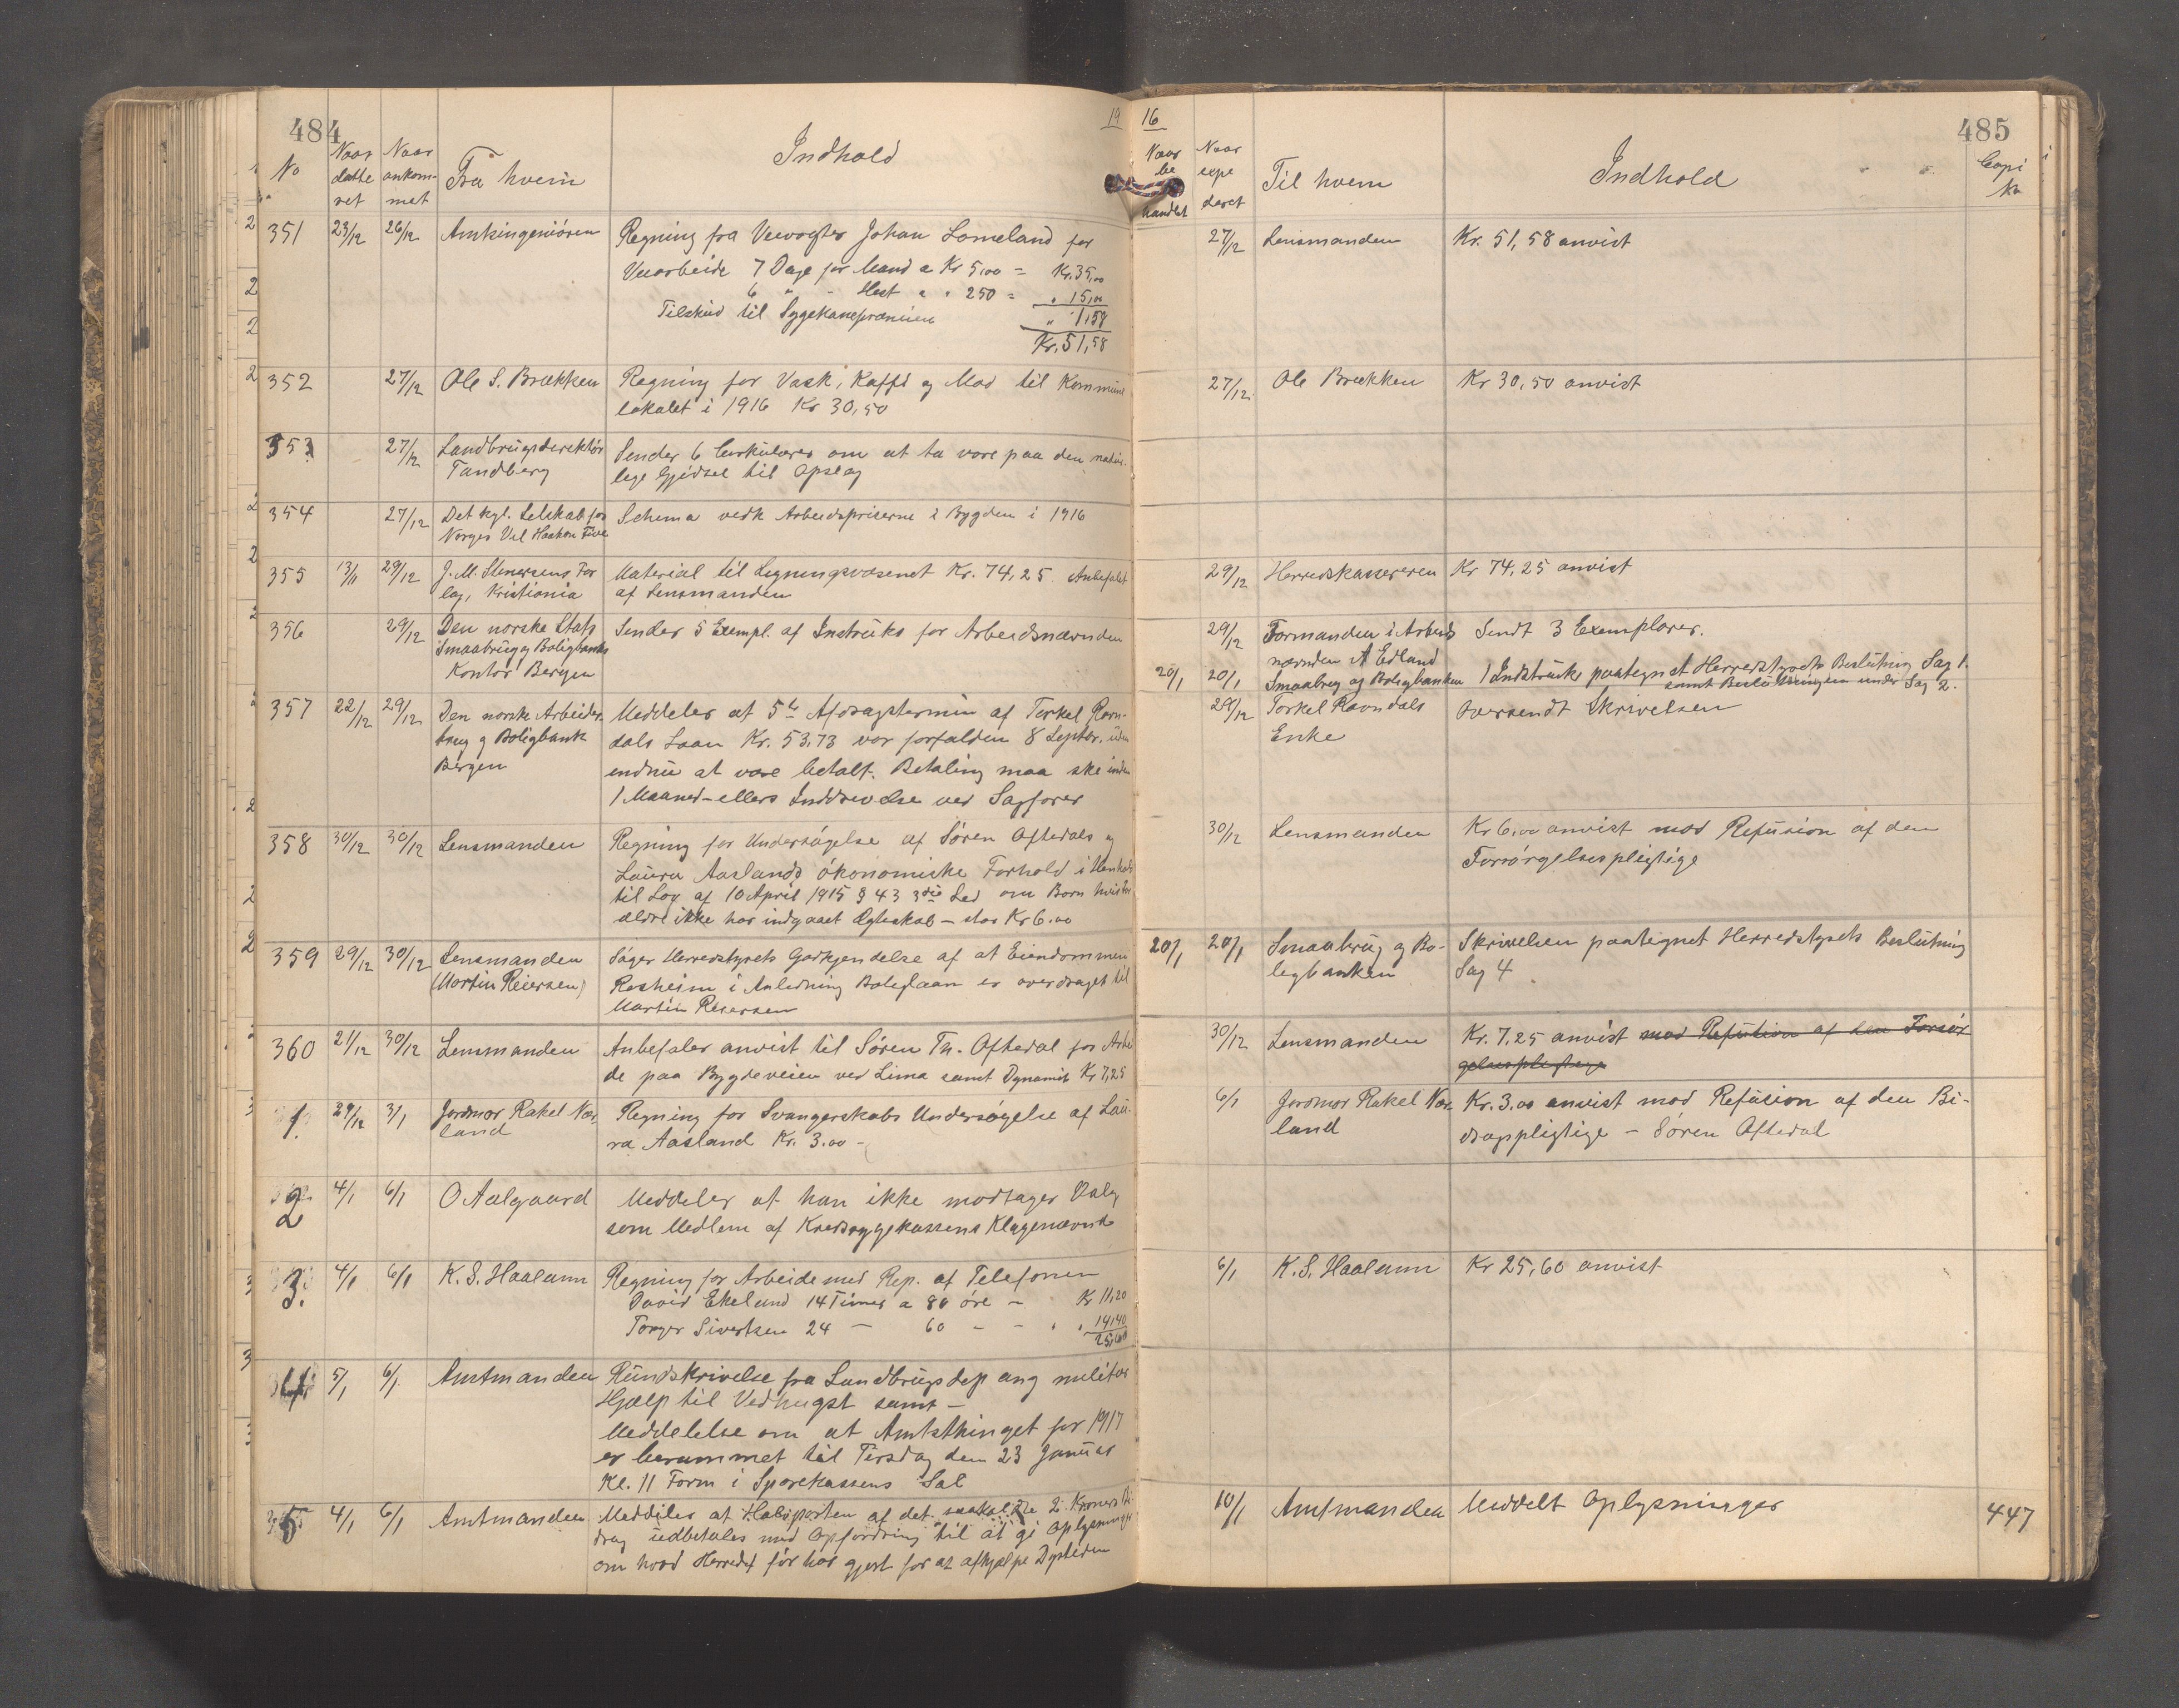 484
19
No
Naar datteret
Naar ankommet
Fra hvem
Indhold
351 23/12 26/12 Amtsingeniören Regning fra Veivogter Johan Lomeland for
Veiarbeide 7 Dage for Mand a Kr 5,00 = Kr. 35,00
6 " - Hest a " 250 = " 15,00
Tilskud til Sygekassepræmien " 1,58
Kr. 51,58
352 27/12 Ole S. Brækken Regning for Vask, Kaffe og Mad til Kommune
lokalet i 1916 Kr 30,50
353 27/12 Landbrugsdirektör Sender 6 Cirkulærer om at ta vare paa den natur-
Tandberg lige Gjödsel til Opslag
354 27/12 Det kgl. Selskab for Schema vedk Arbeidspriserne i Bygden i 1916
Norges Vel Haakon Five
355 13/11 29/12 J. M. Stenersens For Material til Ligningsvæsenet Kr. 74,25 Anbefalet
lag, Kristiania af Lensmanden
356 29/12 Den norske Stats Sender 5 Exempl. af Instruks for Arbeidsnævnden
Smaabrug og Boligbanks
Kontor Bergen
357 22/12 29/12 Den norske Arbeider- Meddeler at 5te Afdragstermin af Torkel Ravn-
brug og Boligbank dals Laan Kr. 53,73 var forfalden 8 Septbr. uden
Bergen endnu at være betalt. Betaling maa ske inden
1 Maaned - ellers Inddrivelse ved Sagförer
358 30/12 30/12 Lensmanden Regning for Undersögelse af Sören Oftedals og
Laura Aaslands ökonomiske Forhold i Henhold
til Lov af 10 April 1915 § 43 3die Led om Born hvis For
ældre ikke har indgaaet Ægteskab - stor Kr 6.00
359 29/12 30/12 Lensmanden Söger Herredstyrets Godkjendelse af at Eiendommen
(Martin Reiersen) Rosheim i Anledning Boliglaan er overdraget til
Martin Reiersen
360 21/12 30/12 Lensmanden Anbefaler anvist til Sören Th. Oftedal for Arbei
de paa Bygdeveien ved Lima samt Dynamit Kr 7,25
1. 29/12 3/1 Jordmor Rakel Nær Regning for Svangerskabs Undersögelse af Lau-
land ra Aasland Kr. 3.00 -
2 4/1 6/1 O Aalgaard Meddeler at han ikke modtager Valg
som Medlem af Kredssygekassens Klagenævnd
3. 4/1 6/1 K. S. Haaland Regning for Arbeide med Rep. af Telefonen
David Ekeland 14 Timer a 80 öre - Kr 11,20
Torger Sivertsen 24 - 60 - - " " 14,40
25,60
4 5/1 6/1 Amtmanden Rundskrivelse fra Landbrugsdep ang militær
Hjælp til Vedhugst samt -
Meddelelse om at Amtsthinget for 1917
er berammet til Tirsdag den 23 Januar
Kl. 11 Form i Sparekassens Sal
5 4/1 6/1 Amtmanden Meddeler at Halvparten af det saakaldte 2 Kroners Bi
drag udbetales med Opfordring til at gi Oplysninger
om hvad Herredet för har gjort for at afhjælpe Dyrtiden
16
485
Naar behandlet
Naar expederet
Til hvem
Indhold
Copi
27/12 Lensmanden Kr. 51,58 anvist
27/12 Ole Brækken Kr 30,50 anvist
29/12 Herredskassereren Kr 74,25 anvist
29/12 Formanden i Arbeids Sendt 3 Exemplarer.
nævnden A Edland
20/1 20/1 Smaabrug og Boligbanken 1 Instruks paategnet Herredstyrets Beslutning Sag 1.
samt Beslutningen under Sag 2.
29/12 Torkel Ravndals Oversendt Skrivelsen
Enke
30/12 Lensmanden Kr 6,00 anvist mod Refusion af den
Forsörgelsespligtige
20/1 20/1 Smaabrug og Bo- Skrivelsen paategnet Herredstyrets Beslutning
ligbanken Sag 4
30/12 Lensmanden Kr. 7,25 anvist mod Refusion af den Forsör
gelsespligtige
6/1 Jordmor Rakel Nær Kr. 3.00 anvist mod Refusion af den Bi-
land dragspligtige - Sören Oftedal
6/1 K. S. Haaland Kr 25,60 anvist
10/1 Amtmanden Meddelt Oplysninger 447